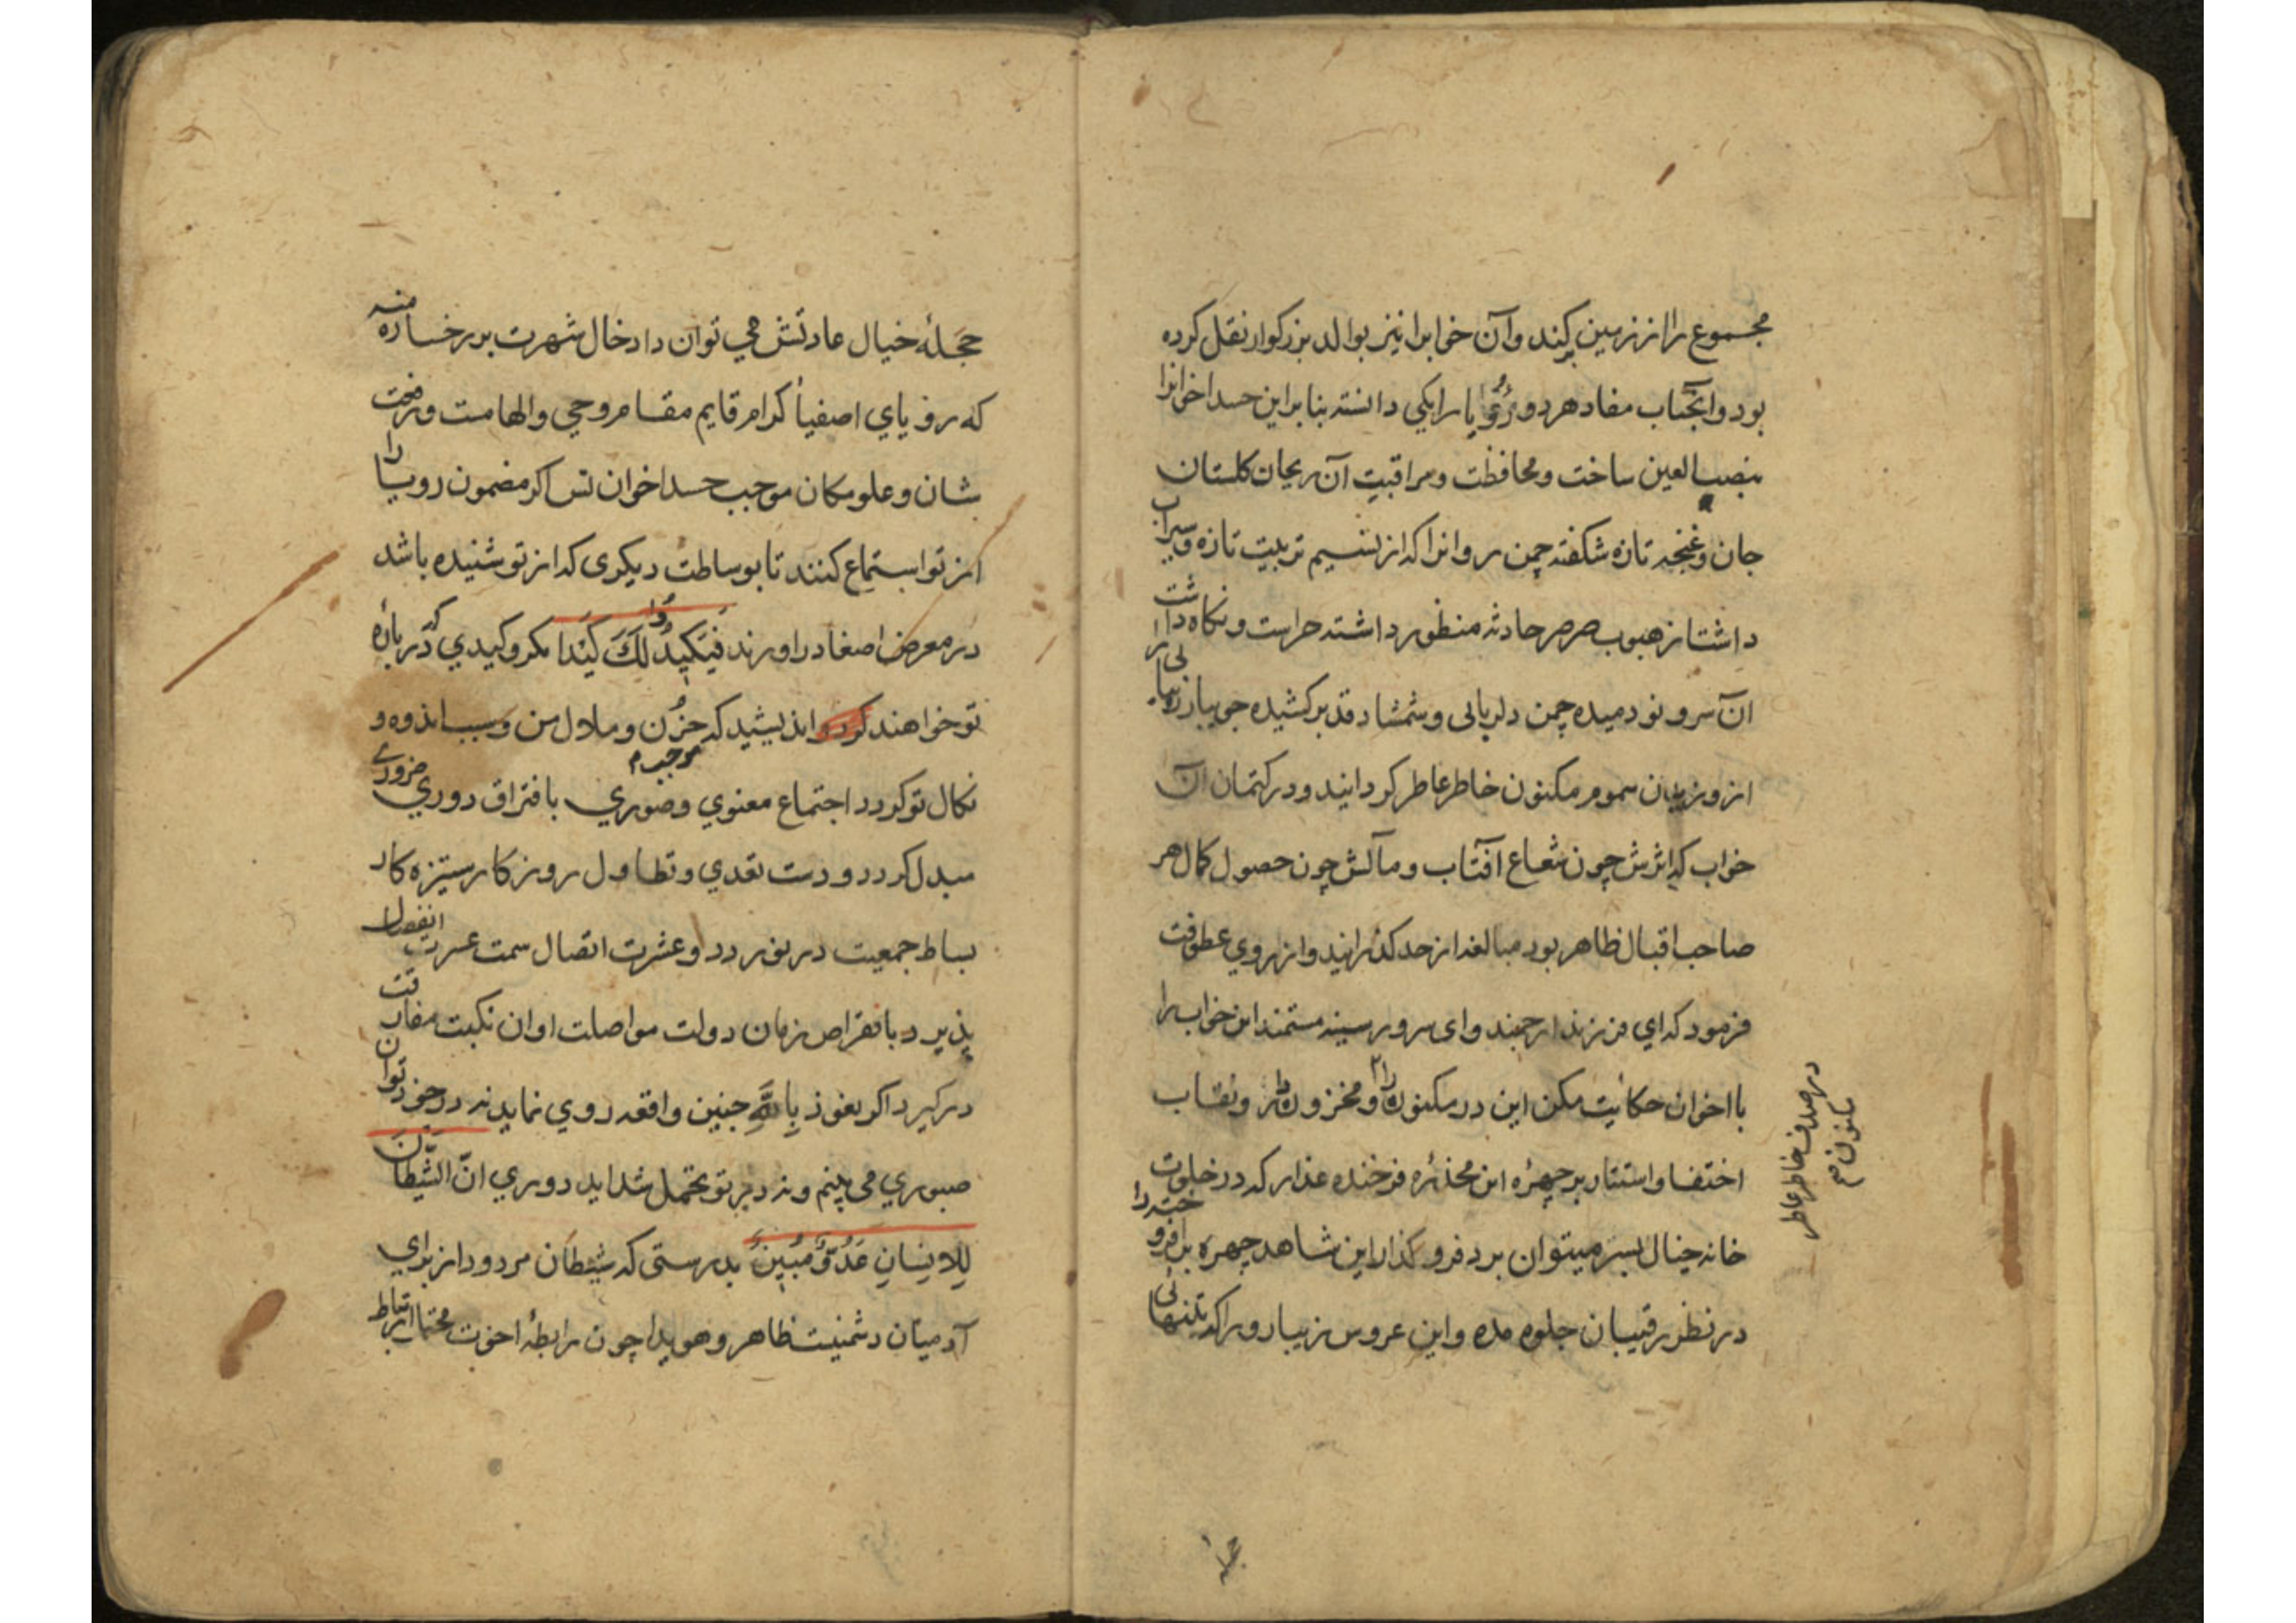 مجموع را از زمین بکند وآن خوابرا نیز بوالد بزرکوار نقل کرده
بود وآنجناب مفاد هر دو رُؤیا را یکی دانسته بنابراین حسد اخوانرا
بنصب العین ساخت ومحافظت ومراقبتِ آن ریحان کلستان
جان وغنچه تازه شکفته چمن روانرا که از نسیم تربیت تازه وسیراب
داشت از هبوب صرصر حادثه منظور داشته حراست ونکاه داشت
آن سرو نو دمیده چمن دلربایی وشمشاد قد برکشیده جویبار زیبایی را
از وزیدن سموم مکنون خاطر عاطر کردانید ودر کتمان آن
خواب که اثرش چون شعاع آفتاب ومآلش چون حصول کمال هر
صاحب اقبال ظاهر بود مبالغه از حد کذرانید واز روي عطوفت
فرمود که اي فرزند ارجمند واى سرور سینه مستمند این خواب را
با اخوان حکایت مکن این در مکنون را ومخزون دار ونقاب
اختفا واستتار بر چهرۀ این مخدّرۀ فرخنده عذار که در خلوت
خانه خیال بسر میتوان برد فرو کذار این شاهد چهره برافروخته را
در نظر رقیبان جلوه مده واین عروس زیبا رو را که بتنهائی
در صدف خاطر عاطر
مکنون
حجلۀ خیال عادتش مي توان داد خال شهرت بر رخساره منه
که رؤیاي اصفیاء کرام قایم مقام وحي والهامست ورفعت
شان وعلو مکان موجب حسد اخوان تس اکر مضمون رویا را
از تو استماع کنند تا بوساطت دیکری که از تو شنیده باشد
در معرض اصغا در اورند فَیَکِیدُوا لَكَ کَیْدا مکر وکیدي که در بارۀ
تو خواهند کرد واندیشید که حزن وملال من وسبب اندوه و
نکال تو کردد اجتماع معنوي وصوري موجب بافتراق دوري ضروري
مبدل کردد ودست تعدي وتطاول روزکار ستیزه کار
بساط جمعیت در نوردد وعشرت اتصال سمت عسرت انفصال
پذیرد بانقراض زمان دولت مواصلت اوان نکبت مفارقت
درکیرد اکر نعوذ بِاللهِ چنین واقعه روي نماید نه در خود توان
صبوري مي بینم ونه در تو تحمل شداید دوري انّ الشَّیْطَانَ
لِلاِنِسَانِ عَدُوٌّ مُبِینٌ بدرستی که شیطان مردود از براي
آدمیان دشمنیست ظاهر وهویدا چون رابطۀ اخوت ارتباط